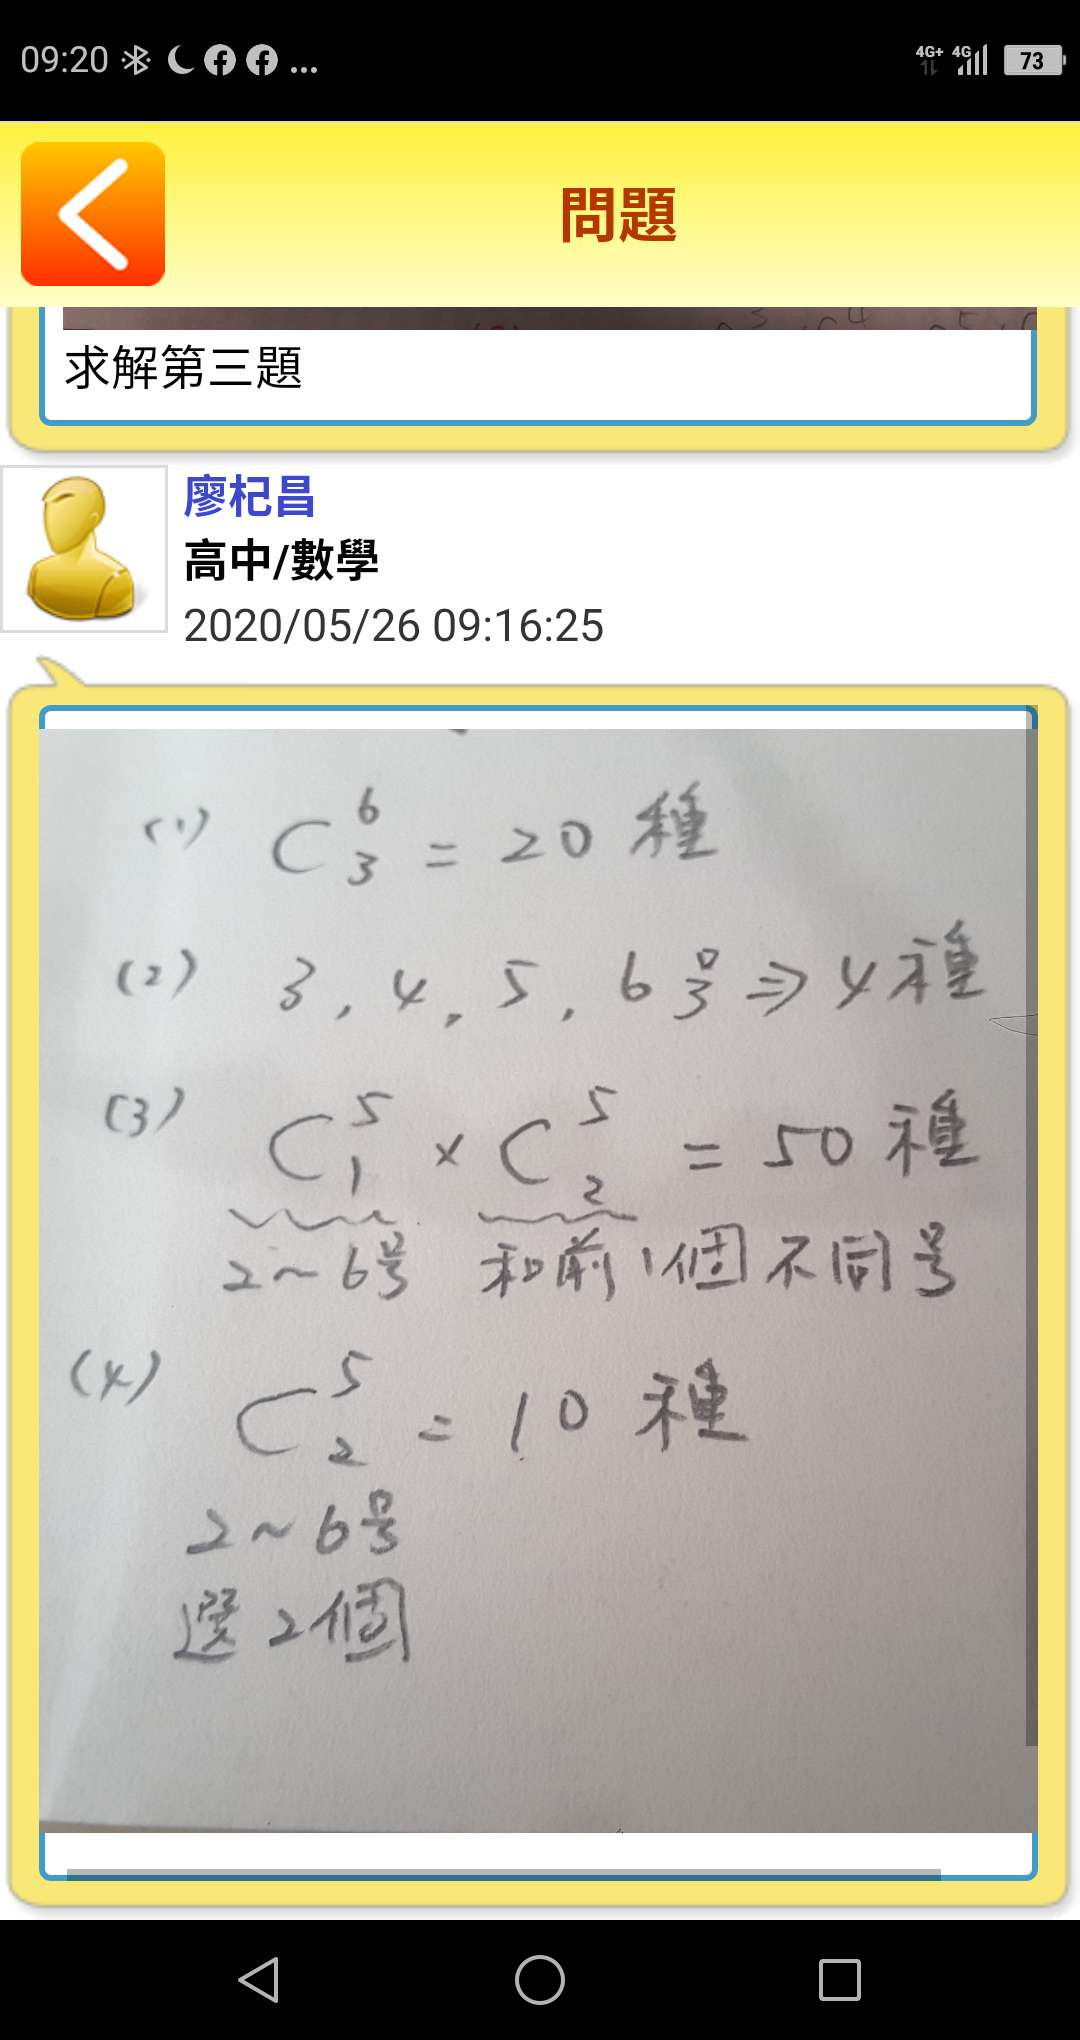 09:20 ... 4G+ 4G 73
問題
求解第三題
廖杞昌
高中/數學
2020/05/26 09:16:25
(1) C 6 3 = 20 種
(2) 3, 4, 5, 6号 ⇒ 4種
(3) C 5 1 × C 5 2 = 50 種
2~6号 和前1個不同号
(4) C 5 2 = 10 種
2~6号
選2個